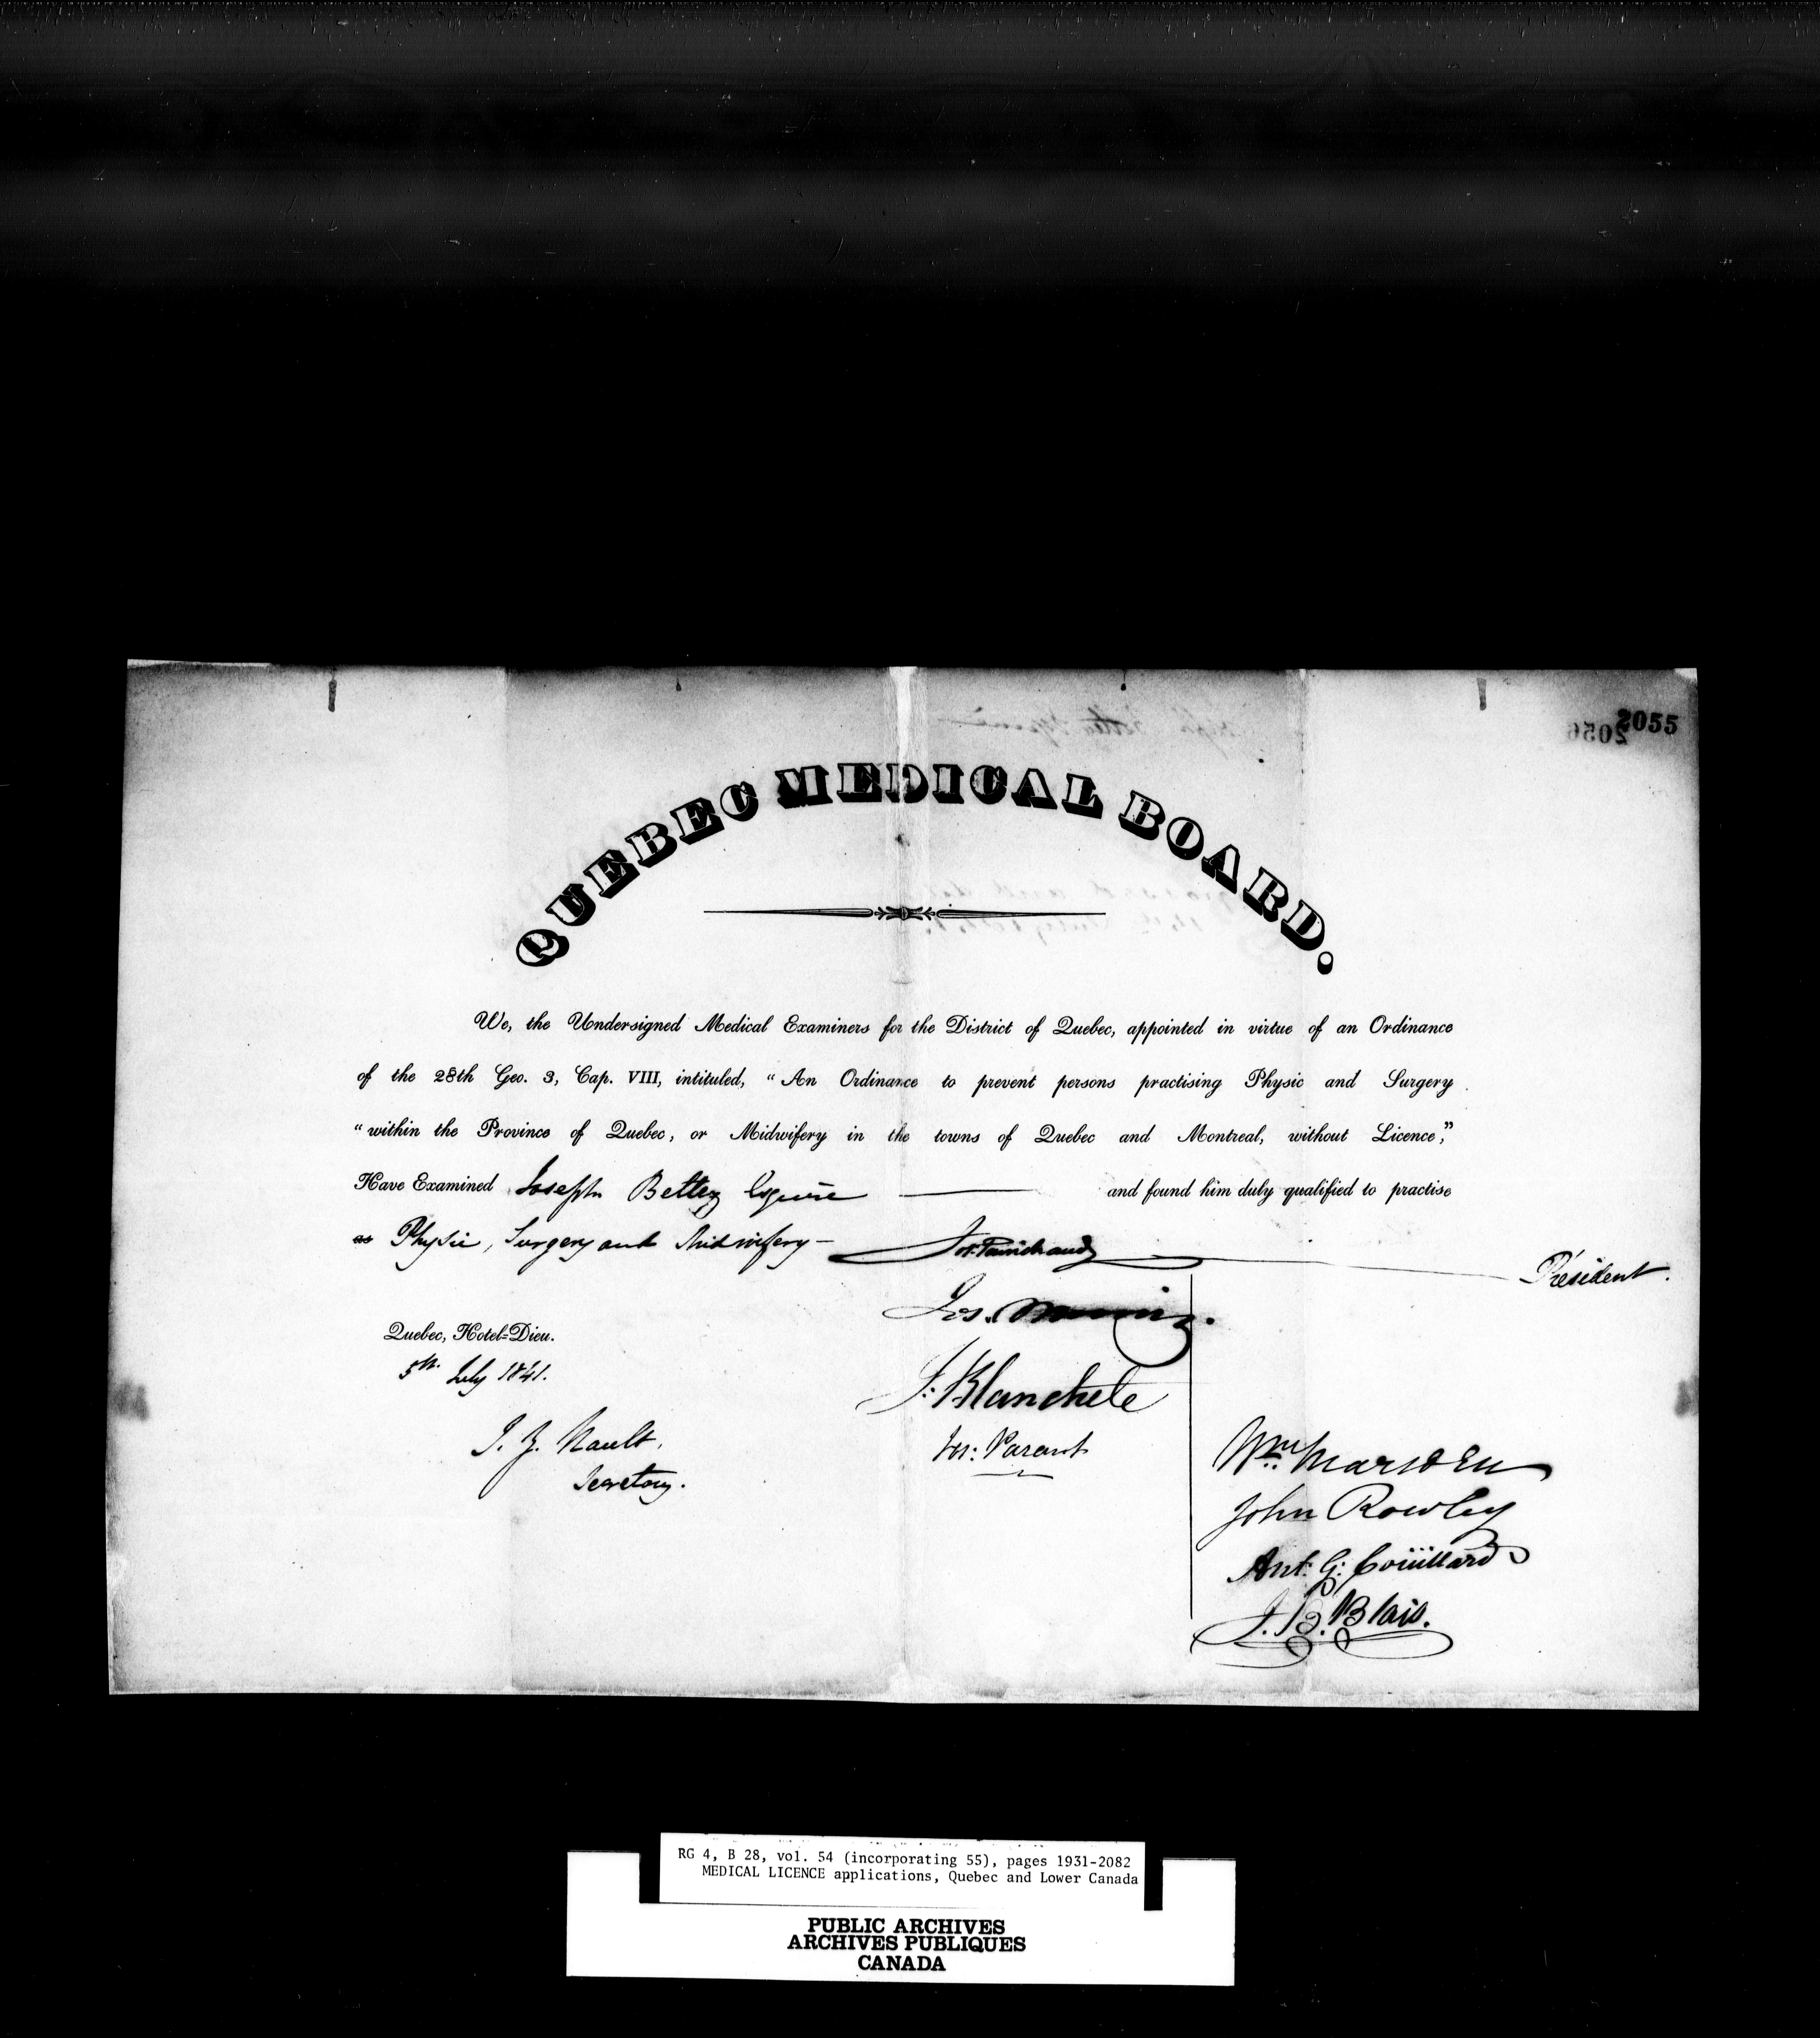 2055
2056
QUEBEC MEDICAL BOARD.
We, the Undersigned Medical Examiners for the District of Quebec, appointed in virtue of an Ordinance
of the 28th Geo. 3, Cap. VIII, intituled, "An Ordinance to prevent persons practising Physic and Surgery
"within the Province of Quebec, or Midwifery in the towns of Quebec and Montreal, without Licence,"
Have Examined Joseph Bettez Esquire and found him duly qualified to practise
as Physic, Surgery and Midwifery -
Jos. Painchaud
Président.
Jos. Morrin
Quebec, Hotel=Dieu.
5th July 1841.
J. Blanchete
J. Z. Nault,
Secretary.
Jos: Parant
Wm. Marsden
John Rowley
Ant. G. Couillard
J. B. Blais.
RG 4, B 28, vol. 54 (incorporating 55), pages 1931-2082
MEDICAL LICENCE applications, Quebec and Lower Canada
PUBLIC ARCHIVES
ARCHIVES PUBLIQUES
CANADA